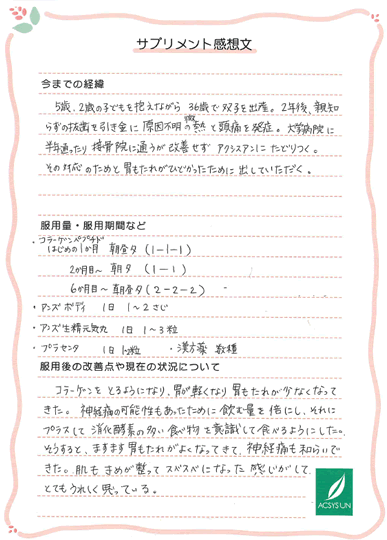 サプリメント感想文
今までの経緯
5歳、2歳の子どもを抱えながら 36歳で双子を出産。2年後、親知
らずの抜歯を引き金に 原因不明の微熱と頭痛を発症。大学病院に
半年通ったり 接骨院に通うが改善せず アクシスアンに たどりつく。
その対応のためと 胃もたれがひどかったために 出していただく。
服用量・服用期間など
・コラーゲンペプチド
はじめの1か月 朝昼夕 (1-1-1)
2か月目~ 朝夕 (1-1)
6か月目~ 朝昼夕 (2-2-2)
・アンズボディ 1日 1~2さじ
・アンズ生精元気丸 1日 1~3粒
・プラセンタ 1日 1~2粒 ・漢方薬 数種
服用後の改善点や現在の状況について
コラーゲンを とるようになり、胃が軽くなり 胃もたれが少なくなって
きた。神経痛の可能性もあったために 飲む量を倍にし、それに
プラスして 消化酵素の多い食べ物を意識して食べるようにした。
そうすると、ますます胃もたれがよくなってきて、神経痛も和らいで
きた。肌も きめが整って スベスベになった 感じがして、
とてもうれしく思っている。
ACSYSUN